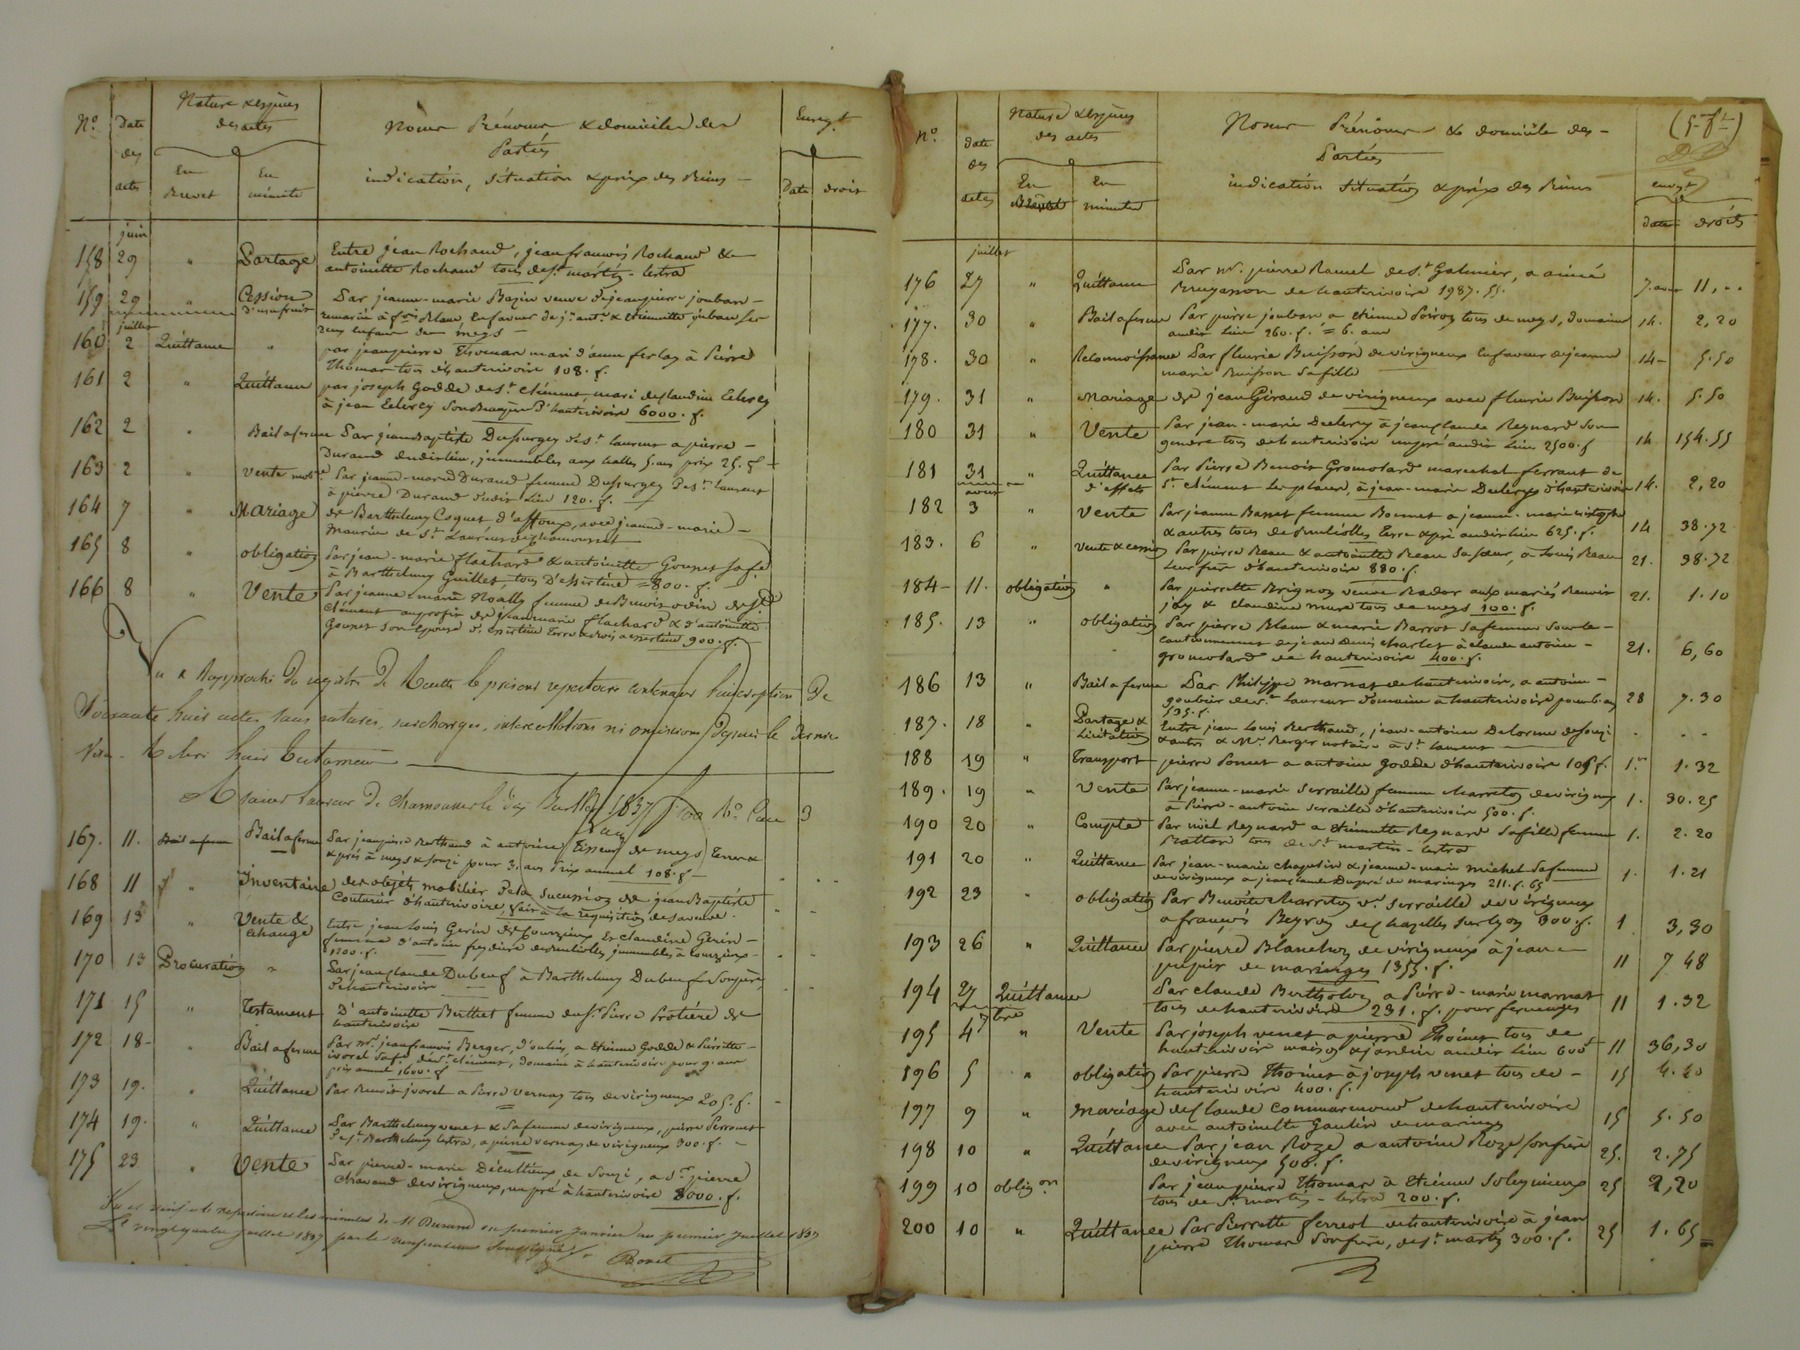 N.o
Date des actes
Nature & espèces des actes
En Brevet
En minute
Noms Prénoms & domiciles des Parties
indication, situation & prix des Biens
Enregt.
Date
droit
juin
158 29 " Partage Entre jean Rochand, jean francois Rochand &
antoinette Rochand tous de St. martin-lestra
159 29 " Cession d'usufruit Par jeanne-marie Bazin veuve de jean pierre jouban
remariée à Blanc, En faveur de & etiennette jouban ses
deux enfans de meys
juillet
160 2 Quittance " par jean pierre Thomas mari d'anne ferlay à Pierre
Thomas tous d'hauterivoire 108. f.
161 2 " Quittance par joseph Godde de St. Clément mari de claudine
à jean son d'hauterivoire 6000. f.
162 2 " Bail a ferme Par jean Baptiste Dussurgey de St. laurent a pierre
Durand dudit lieu, immeubles aux halles 5. ans prix 25. f.
163 2 " Vente mobe. Par jeanne-marie Durand femme Dussurgey de St. laurent
à pierre Durand dudit lieu 120. f.
164 7 " Mariage de Barthelemy Coquet d'affoux, avec jeanne-marie
de St. Laurent de chamousset
165 8 " obligation Par jean-marie flachard & antoinette Goupet sa fe.
à Barthelemy Guillet tous d'essertine = 800. f.
166 8 " Vente Par jeanne-marie Noally femme de Benoit odin de St.
Clément au profit de jean marie flachard & d'antoinette
Goupet son épouse d'essertine Terre & bois a essertine 900. f.
Vu & Rapproché du registre de Recette le présent repertoire contenant l'inscription De
Soixante huit actes sans ratures, surcharges, intercallations ni omissions depuis le dernier
Visa
St. Laurent de chamousset le dix Juillet 1837
167. 11. Bail a ferme Bail a ferme Par jean pierre Berthaud à antoine Tisseur de meys Terres &
& prés à meys & souzi pour 3. ans Prix annuel 108. f.
168 11 " Inventaire des objets mobilier de la succession de jean Baptiste
Couturier d'hauterivoire, fait à la requisition de sa veuve.
169 13 " Vente & Echange Entre jean Louis Gerin de Courzieux Et claudine Gerin
femme d'antoine de Brulioles, immeubles à Courzieux
1200. f.
170 13 Procuration " Par jean claude Dubeuf à Barthelemy Dubeuf son père
d'hauterivoire
171 15 " Testament D'antoinette Berthet femme de Sr. Pierre Protière de
hauterivoire
172 18 " Bail a ferme Par Mr. jean francois Berger, d'oulins, a Etienne Godde & Pierrette
jvorel sa fe. de St. clément, domaine à hauterivoire pour 9. ans
prix annuel 1600. f.
173 19. " Quittance Par Benoit jvorel a Pierre Vernay tous de virigneux 205. f.
174 19. " Quittance Par Barthelemy venet & sa femme de virigneux, pierre Perronet
de St. Barthelemy lestra, a pierre vernay de virigneux 300. f.
175 23 " Vente Par pierre-marie Décultieux de Souzi, a Sr. pierre
Chavand de virigneux, un pré à hauterivoire 8000. f.
Vu et vérifié le repertoire et les minutes de Mr Durand du premier janvier au premier juillet 1837
Le vingt quatre juillet 1837 par le verificateur soussigné
Bonet
N.o
date des actes
Nature & espèces des actes
En Brevet
En minute
Noms Prénoms & domicile des
Parties
indication situation & prix des Biens
enregt.
date
droits
juillet
176 27 " Quittance Par Mr. pierre Ramel de St. Galmier, a aimée
Bruyasson de hauterivoire 1987. 55. 7. aout 11, "
177. 30 " Bail a ferme Par pierre jouban a etienne Poizat tous de meys, domaine
audit lieu 260. f. = 6. ans 14. 2, 20
178. 30 " Reconnoissance Par fleurie Buisson de virigneux en faveur de jeanne
marie Buisson sa fille 14 5. 50
179. 31 " Mariage de jean Giraud de virigneux avec fleurie Buisson 14. 5. 50
180 31 " Vente Par jean-marie Declerq à jean claude Regnard son
gendre tous de hauterivoire un pré audit lieu 2500. f 14 154. 55
181 31 " Quittance d'effets Par Pierre Benoit Gromolard marechal ferrant de
St. clément les places, à jean-marie Declerq d'hauterivoire 14. 2, 20
aout
182 3 " Vente Par jeanne Basset femme Bonnet a jeanne-marie
& autres tous de Brullioles Terre & pré audit lieu 625. f. 14 38. 72
183. 6 " Vente & cession Par pierre Reau & antoinette Reau sa soeur, à Louis Reau
leur frère d'hauterivoire 880. f. 21. 38. 72
184 11. obligation " Par pierrette Brignon veuve Radar aux mariés Benoit
joly & claudine mure tous de meys 100. f. 21. 1. 10
185. 13 " obligation Par pierre Blanc & marie Barrot sa femme sous le
cautionnement de jean Denis charlet à claude antoine
gromolard de hauterivoire 400. f. 21. 6, 60
186 13 " Bail a ferme Par Philippe marnat de hauterivoire, a antoine
goubier de St. laurent domaine à hauterivoire pour 6. ans
535. f. 28 7. 30
187. 18 " Partage & Licitation Entre jean Louis Berthaud, jean-antoine Delorme de souzi
& autres & Mr. Berger notaire à St. laurent - - -
188 19 " Transport pierre Poncet a antoine godde d'hauterivoire 105 f. 1.er 1. 32
189. 19 " Vente Par jeanne-marie serraille femme charreton de virigneux
à Pierre-antoine serraille d'hauterivoire 500. f. 1. 30. 25
190 20 " Compte Par noël Regnard a Etiennette Regnard sa fille femme
Bratton tous de St. martin-lestra 1. 2. 20
191 20 " Quittance Par jean-marie chapelin & jeanne-marie michel sa femme
de virigneux a jean claude Dupré de maringes 211. f. 65 1. 1. 21
192 23 " obligation Par Benoite charreton ve. serraille de virigneux
a françois Beyron de chazelles sur lyon 300. f. 1 3, 30
193 26 " Quittance Par pierre Blanchon de virigneux à jean
pupier de maringes 1355. f. 11 7 48
194 27 Quittance Par claude Bertholon a Pierre-marie marnat
tous de hauterivoire 231. f. pour fermages 11 1. 32
7bre
195 4 " Vente Par joseph venet a pierre Thoinet tous de
hauterivoire maison & jardin audit lieu 600f 11 36, 30
196 5 " obligation Par pierre Thoinet à joseph venet tous de
hauterivoire 400. f. 15 4. 40
197 9 " Mariage de claude Commarmond de hauterivoire
avec antoinette Gaulin de maringes 15 5. 50
198 10 " Quittance Par jean Roze a antoine Roze son frère
de virigneux 500. f. 25. 2. 75
199 10 obligon. Par jean pierre Thomas a Etienne Soleymieux
tous de St martin-lestra 200. f. 25 2, 20
200 10 " Quittance Par Pierrette ferreol de hauterivoire à jean
pierre Thomas son frère, de St. martin 300. f. 25 1. 65